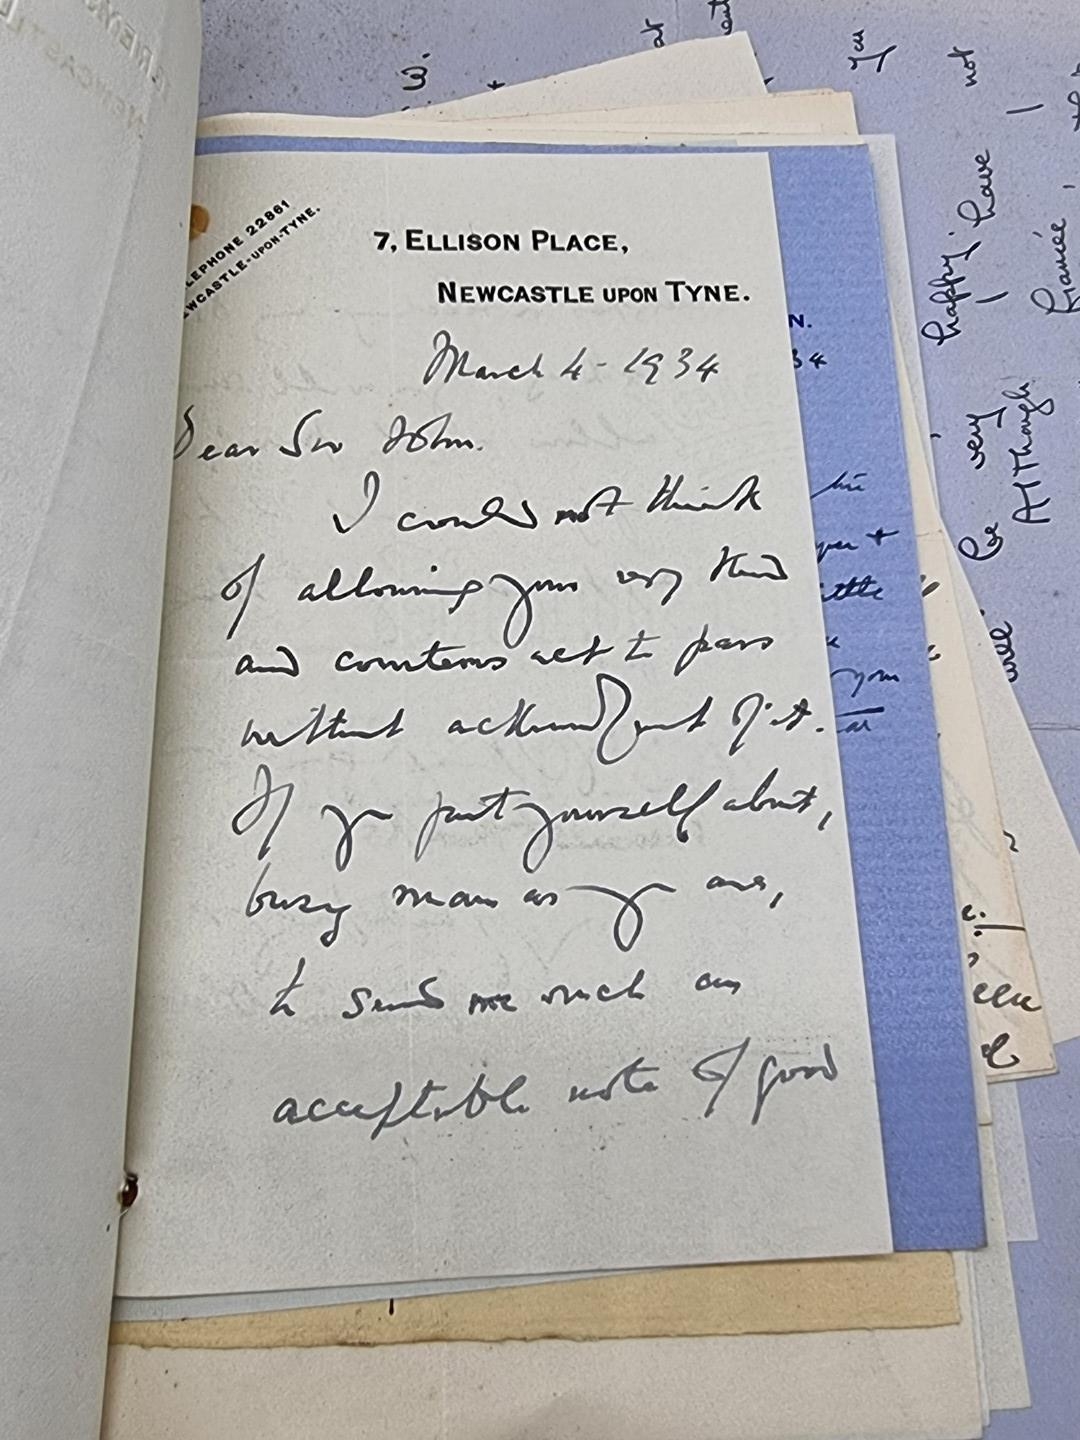 TELEPHONE 22861
NEWCASTLE-UPON-TYNE.
7, ELLISON PLACE,
NEWCASTLE UPON TYNE.
March 4 - 1934
Dear Sir John.
I could not think
of allowing your very kind
and courteous act to pass
without acknowledgment of it.
If you put yourself about,
busy man as you are,
to send me such an
acceptable note of good
N.
34
your
W.
You
not
I
happy; I have
fiancée,
be very
Although
well